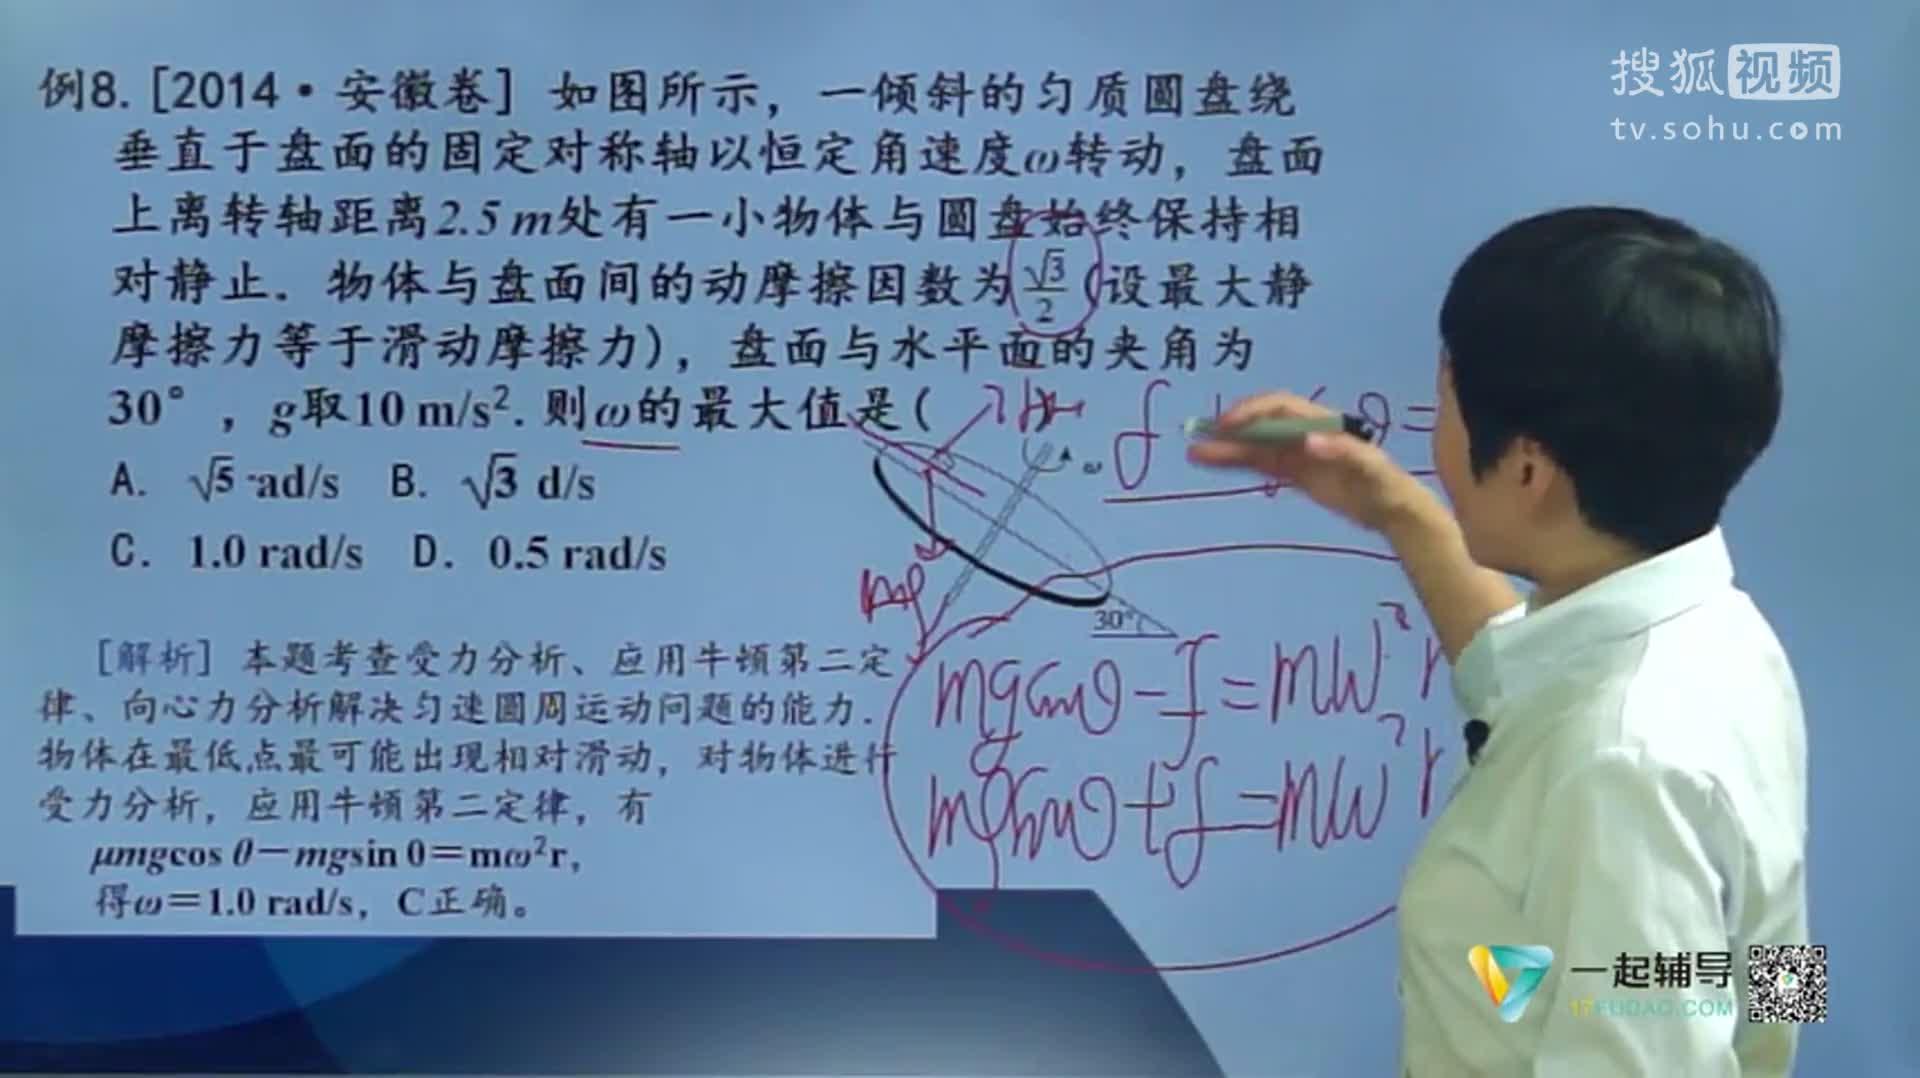 搜狐视频
tv.sohu.com
例8. [2014·安徽卷] 如图所示，一倾斜的匀质圆盘绕
垂直于盘面的固定对称轴以恒定角速度ω转动，盘面
上离转轴距离2.5 m处有一小物体与圆盘始终保持相
对静止．物体与盘面间的动摩擦因数为√3/2（设最大静
摩擦力等于滑动摩擦力），盘面与水平面的夹角为
30°，g取10 m/s². 则ω的最大值是(
A. √5 ad/s B. √3 d/s
C. 1.0 rad/s D. 0.5 rad/s
ω
mg
30°
[解析] 本题考查受力分析、应用牛顿第二定
律、向心力分析解决匀速圆周运动问题的能力．
物体在最低点最可能出现相对滑动，对物体进行
受力分析，应用牛顿第二定律，有
μmgcos θ－mgsin θ＝mω²r，
得ω＝1.0 rad/s，C正确。
mgsinθ-f=mω²r
mgsinθ+f=mω²r
一起辅导
17FUDAO.COM